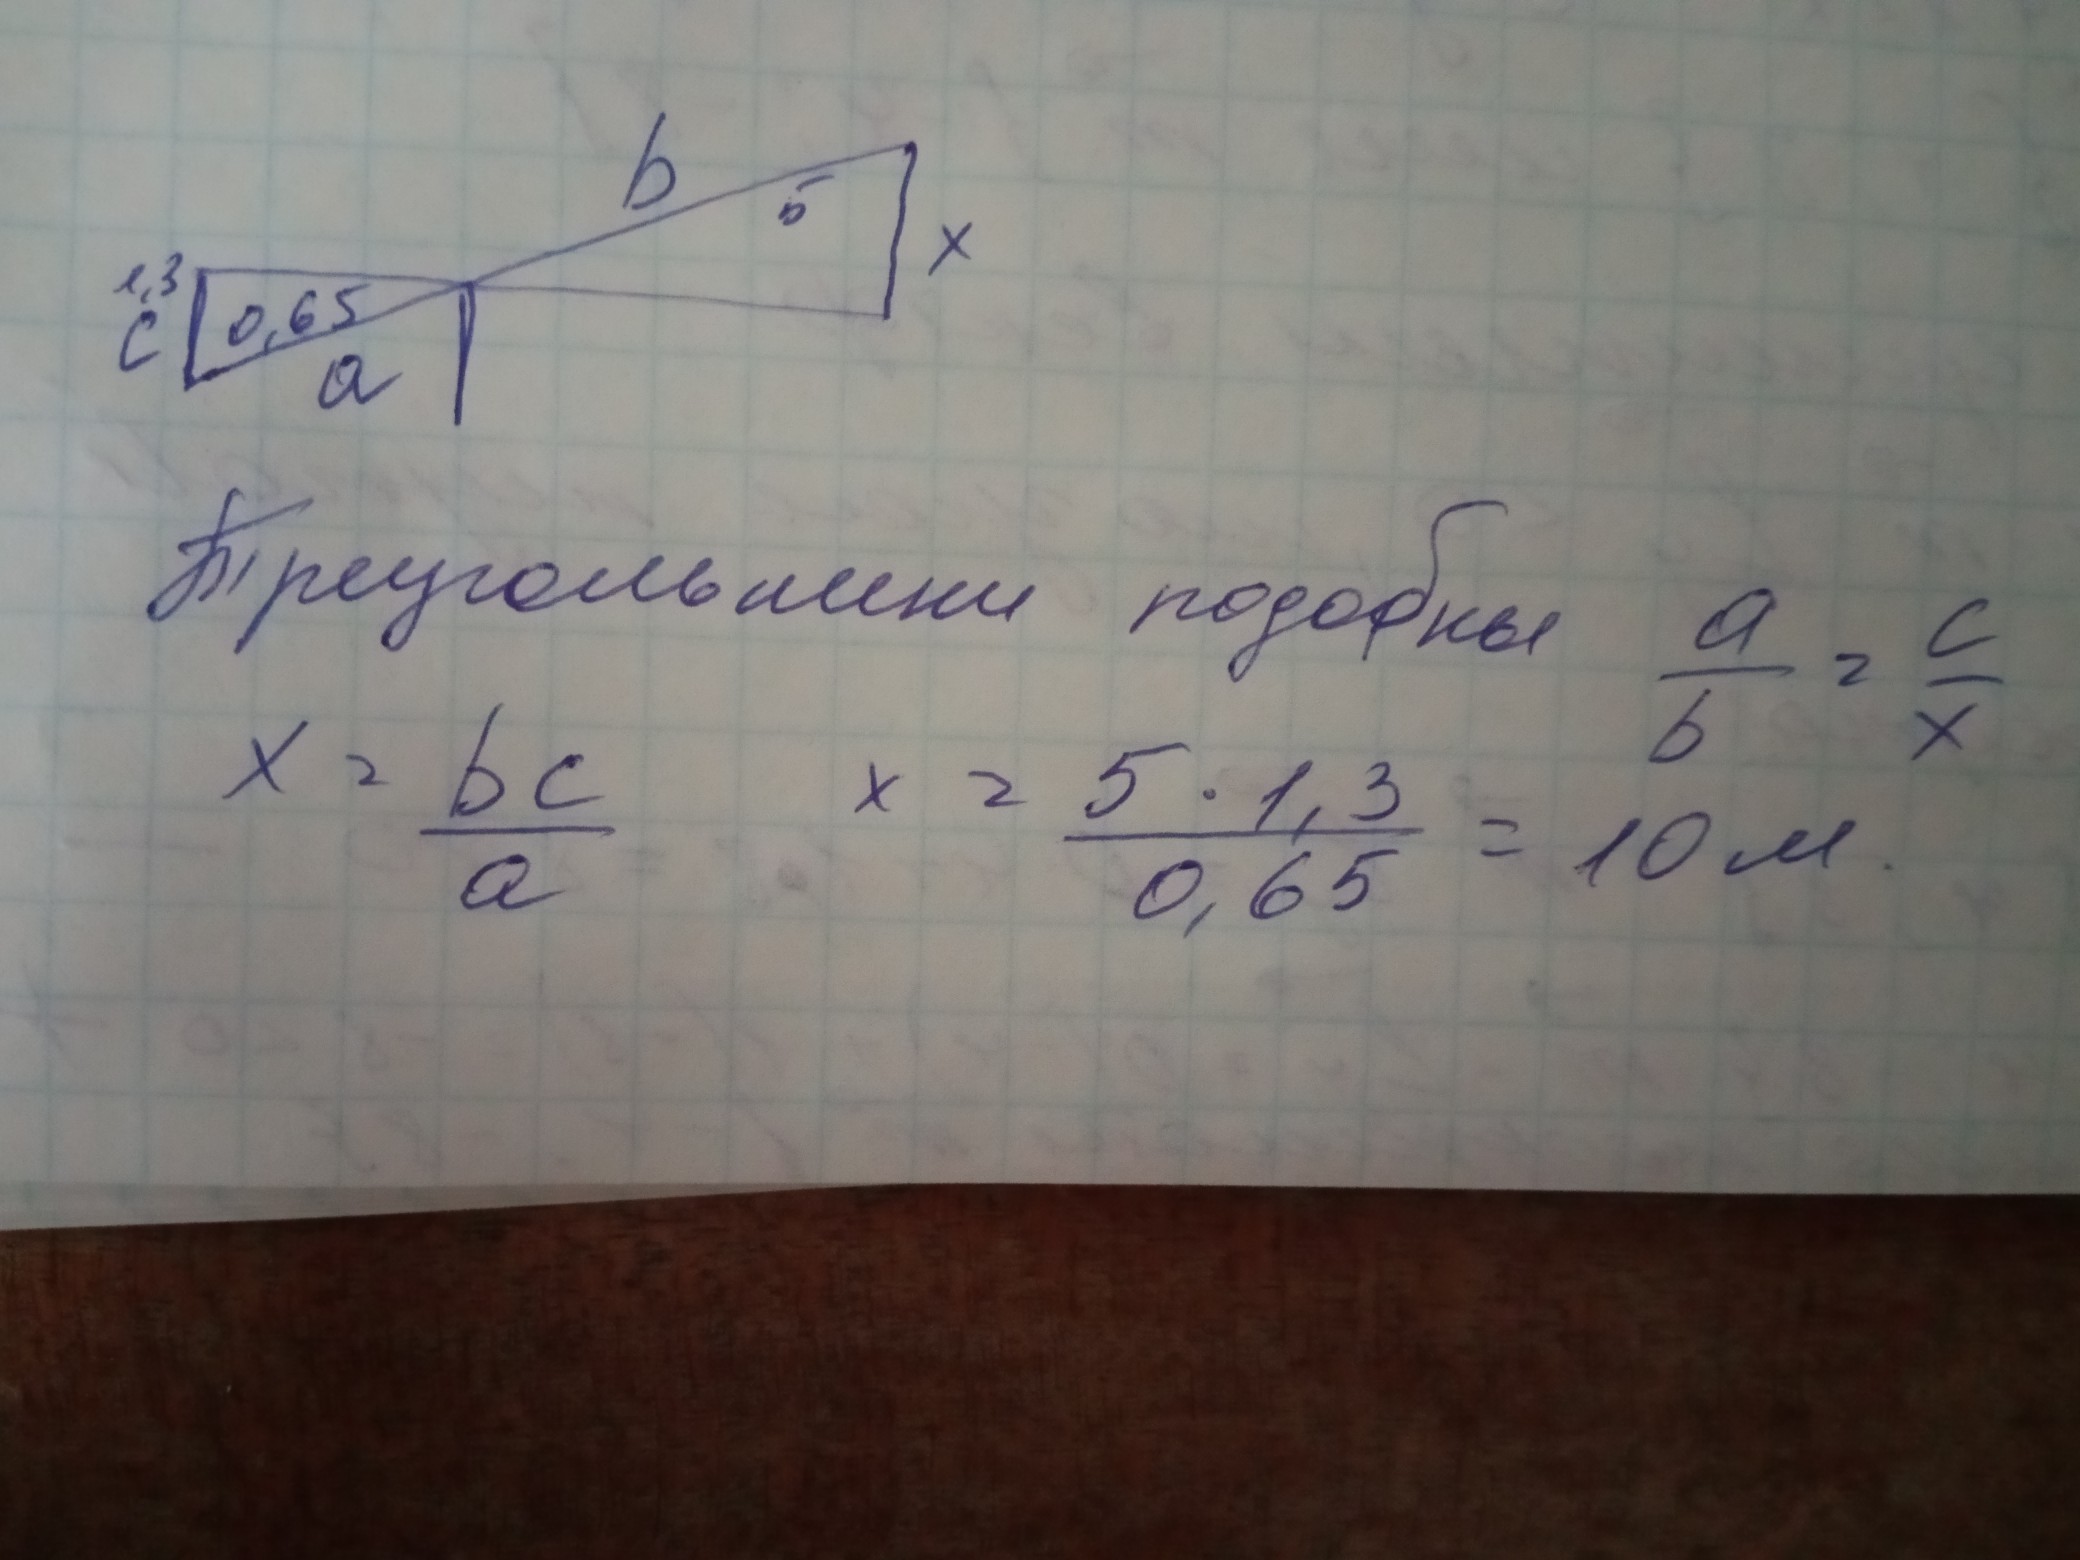 b
5
x
1,3
0,65
c
a
Треугольники подобны a/b = c/x
x = bc/a x = 5·1,3/0,65 = 10 м.